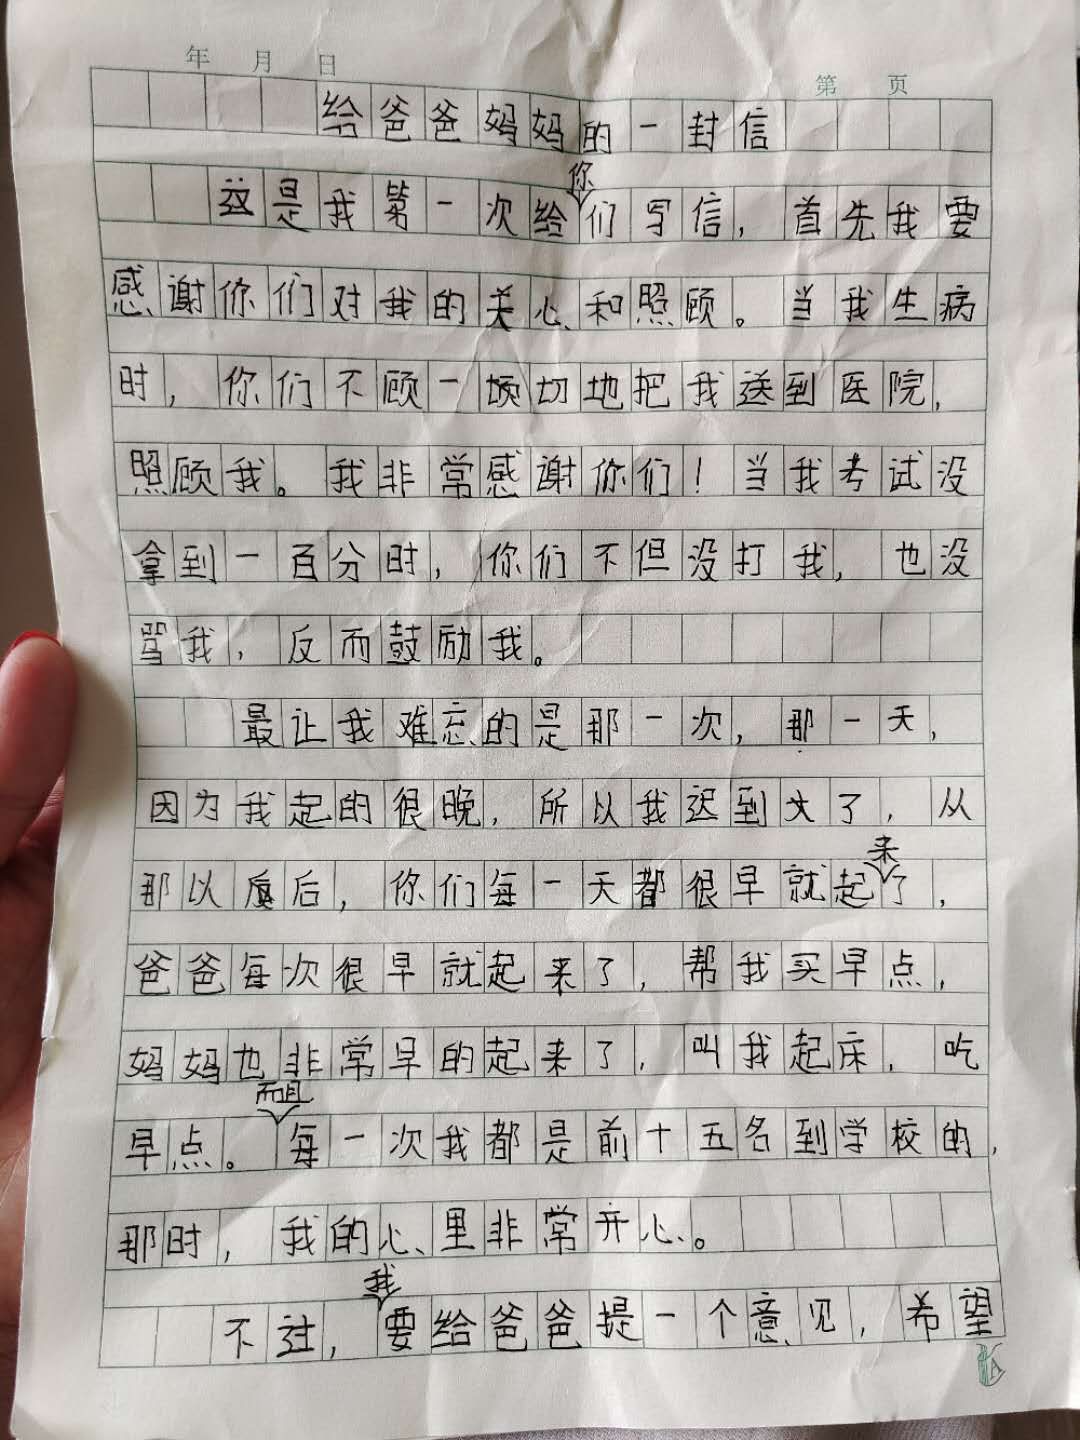 年 月 日
第 页
给爸爸妈妈的一封信
这是我第一次给你们写信，首先我要
感谢你们对我的关心和照顾。当我生病
时，你们不顾一切地把我送到医院，
照顾我。我非常感谢你们！当我考试没
拿到一百分时，你们不但没打我，也没
骂我，反而鼓励我。
最让我难忘的是那一次，那一天，
因为我起的很晚，所以我迟到大了，从
那以后，你们每一天都很早就起来了，
爸爸每次很早就起来了，帮我买早点，
妈妈也非常早的起来了，叫我起床，吃
早点。而且每一次我都是前十五名到学校的，
那时，我的心里非常开心。
不过，我要给爸爸提一个意见，希望